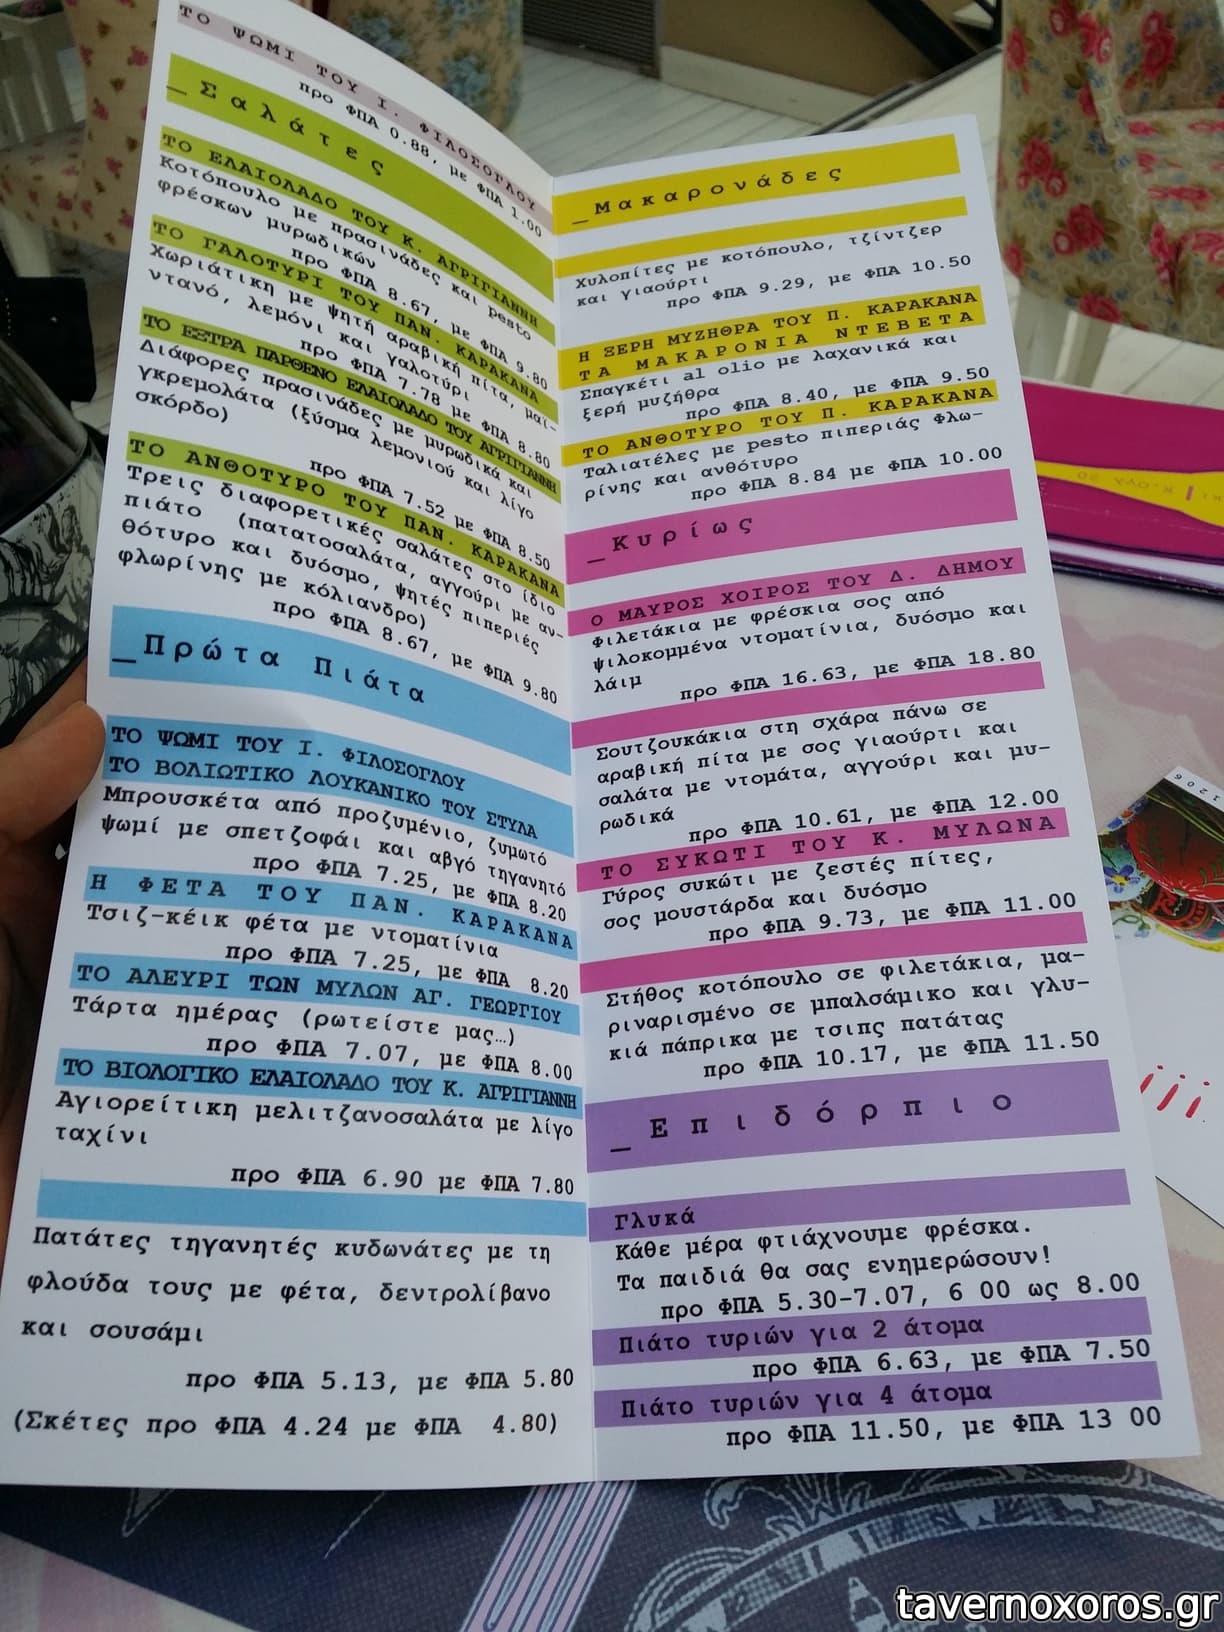 ΤΟ ΨΩΜΙ ΤΟΥ Ι. ΦΙΛΟΣΟΓΛΟΥ
προ ΦΠΑ 0.88, με ΦΠΑ 1.00
_Σαλάτες
ΤΟ ΕΛΑΙΟΛΑΔΟ ΤΟΥ Κ. ΑΓΡΙΓΙΑΝΝΗ
Κοτόπουλο με πρασινάδες και pesto
φρέσκων μυρωδικών
προ ΦΠΑ 8.67, με ΦΠΑ 9.80
ΤΟ ΓΑΛΟΤΥΡΙ ΤΟΥ ΠΑΝ. ΚΑΡΑΚΑΝΑ
Χωριάτικη με ψητή αραβική πίτα, μαϊ-
ντανό, λεμόνι και γαλοτύρι
προ ΦΠΑ 7.78 με ΦΠΑ 8.80
ΤΟ ΕΞΤΡΑ ΠΑΡΘΕΝΟ ΕΛΑΙΟΛΑΔΟ ΤΟΥ ΑΓΡΙΓΙΑΝΝΗ
Διάφορες πρασινάδες με μυρωδικά και
γκρεμολάτα (ξύσμα λεμονιού και λίγο
σκόρδο)
προ ΦΠΑ 7.52 με ΦΠΑ 8.50
ΤΟ ΑΝΘΟΤΥΡΟ ΤΟΥ ΠΑΝ. ΚΑΡΑΚΑΝΑ
Τρεις διαφορετικές σαλάτες στο ίδιο
πιάτο (πατατοσαλάτα, αγγούρι με αν-
θότυρο και δυόσμο, ψητές πιπεριές
φλωρίνης με κόλιανδρο)
προ ΦΠΑ 8.67, με ΦΠΑ 9.80
_Πρώτα Πιάτα
ΤΟ ΨΩΜΙ ΤΟΥ Ι. ΦΙΛΟΣΟΓΛΟΥ
ΤΟ ΒΟΛΙΩΤΙΚΟ ΛΟΥΚΑΝΙΚΟ ΤΟΥ ΣΤΥΛΑ
Μπρουσκέτα από προζυμένιο, ζυμωτό
ψωμί με σπετζοφάι και αβγό τηγανητό
προ ΦΠΑ 7.25, με ΦΠΑ 8.20
Η ΦΕΤΑ ΤΟΥ ΠΑΝ. ΚΑΡΑΚΑΝΑ
Τσιζ-κέικ φέτα με ντοματίνια
προ ΦΠΑ 7.25, με ΦΠΑ 8.20
ΤΟ ΑΛΕΥΡΙ ΤΩΝ ΜΥΛΩΝ ΑΓ. ΓΕΩΡΓΙΟΥ
Τάρτα ημέρας (ρωτείστε μας…)
προ ΦΠΑ 7.07, με ΦΠΑ 8.00
ΤΟ ΒΙΟΛΟΓΙΚΟ ΕΛΑΙΟΛΑΔΟ ΤΟΥ Κ. ΑΓΡΙΓΙΑΝΝΗ
Αγιορείτικη μελιτζανοσαλάτα με λίγο
ταχίνι
προ ΦΠΑ 6.90 με ΦΠΑ 7.80
Πατάτες τηγανητές κυδωνάτες με τη
φλούδα τους με φέτα, δεντρολίβανο
και σουσάμι
προ ΦΠΑ 5.13, με ΦΠΑ 5.80
(Σκέτες προ ΦΠΑ 4.24 με ΦΠΑ 4.80)
_Μακαρονάδες
Χυλοπίτες με κοτόπουλο, τζίντζερ
και γιαούρτι
προ ΦΠΑ 9.29, με ΦΠΑ 10.50
Η ΞΕΡΗ ΜΥΖΗΘΡΑ ΤΟΥ Π. ΚΑΡΑΚΑΝΑ
ΤΑ ΜΑΚΑΡΟΝΙΑ ΝΤΕΒΕΤΑ
Σπαγκέτι al olio με λαχανικά και
ξερή μυζήθρα
προ ΦΠΑ 8.40, με ΦΠΑ 9.50
ΤΟ ΑΝΘΟΤΥΡΟ ΤΟΥ Π. ΚΑΡΑΚΑΝΑ
Ταλιατέλες με pesto πιπεριάς Φλω-
ρίνης και ανθότυρο
προ ΦΠΑ 8.84 με ΦΠΑ 10.00
_Κυρίως
Ο ΜΑΥΡΟΣ ΧΟΙΡΟΣ ΤΟΥ Δ. ΔΗΜΟΥ
Φιλετάκια με φρέσκια σος από
ψιλοκομμένα ντοματίνια, δυόσμο και
λάιμ
προ ΦΠΑ 16.63, με ΦΠΑ 18.80
Σουτζουκάκια στη σχάρα πάνω σε
αραβική πίτα με σος γιαούρτι και
σαλάτα με ντομάτα, αγγούρι και μυ-
ρωδικά
προ ΦΠΑ 10.61, με ΦΠΑ 12.00
ΤΟ ΣΥΚΩΤΙ ΤΟΥ Κ. ΜΥΛΩΝΑ
Γύρος συκώτι με ζεστές πίτες,
σος μουστάρδα και δυόσμο
προ ΦΠΑ 9.73, με ΦΠΑ 11.00
Στήθος κοτόπουλο σε φιλετάκια, μα-
ριναρισμένο σε μπαλσάμικο και γλυ-
κιά πάπρικα με τσιπς πατάτας
προ ΦΠΑ 10.17, με ΦΠΑ 11.50
_Επιδόρπιο
Γλυκά
Κάθε μέρα φτιάχνουμε φρέσκα.
Τα παιδιά θα σας ενημερώσουν!
προ ΦΠΑ 5.30-7.07, 6 00 ως 8.00
Πιάτο τυριών για 2 άτομα
προ ΦΠΑ 6.63, με ΦΠΑ 7.50
Πιάτο τυριών για 4 άτομα
προ ΦΠΑ 11.50, με ΦΠΑ 13 00
1206
tavernoxoros.gr